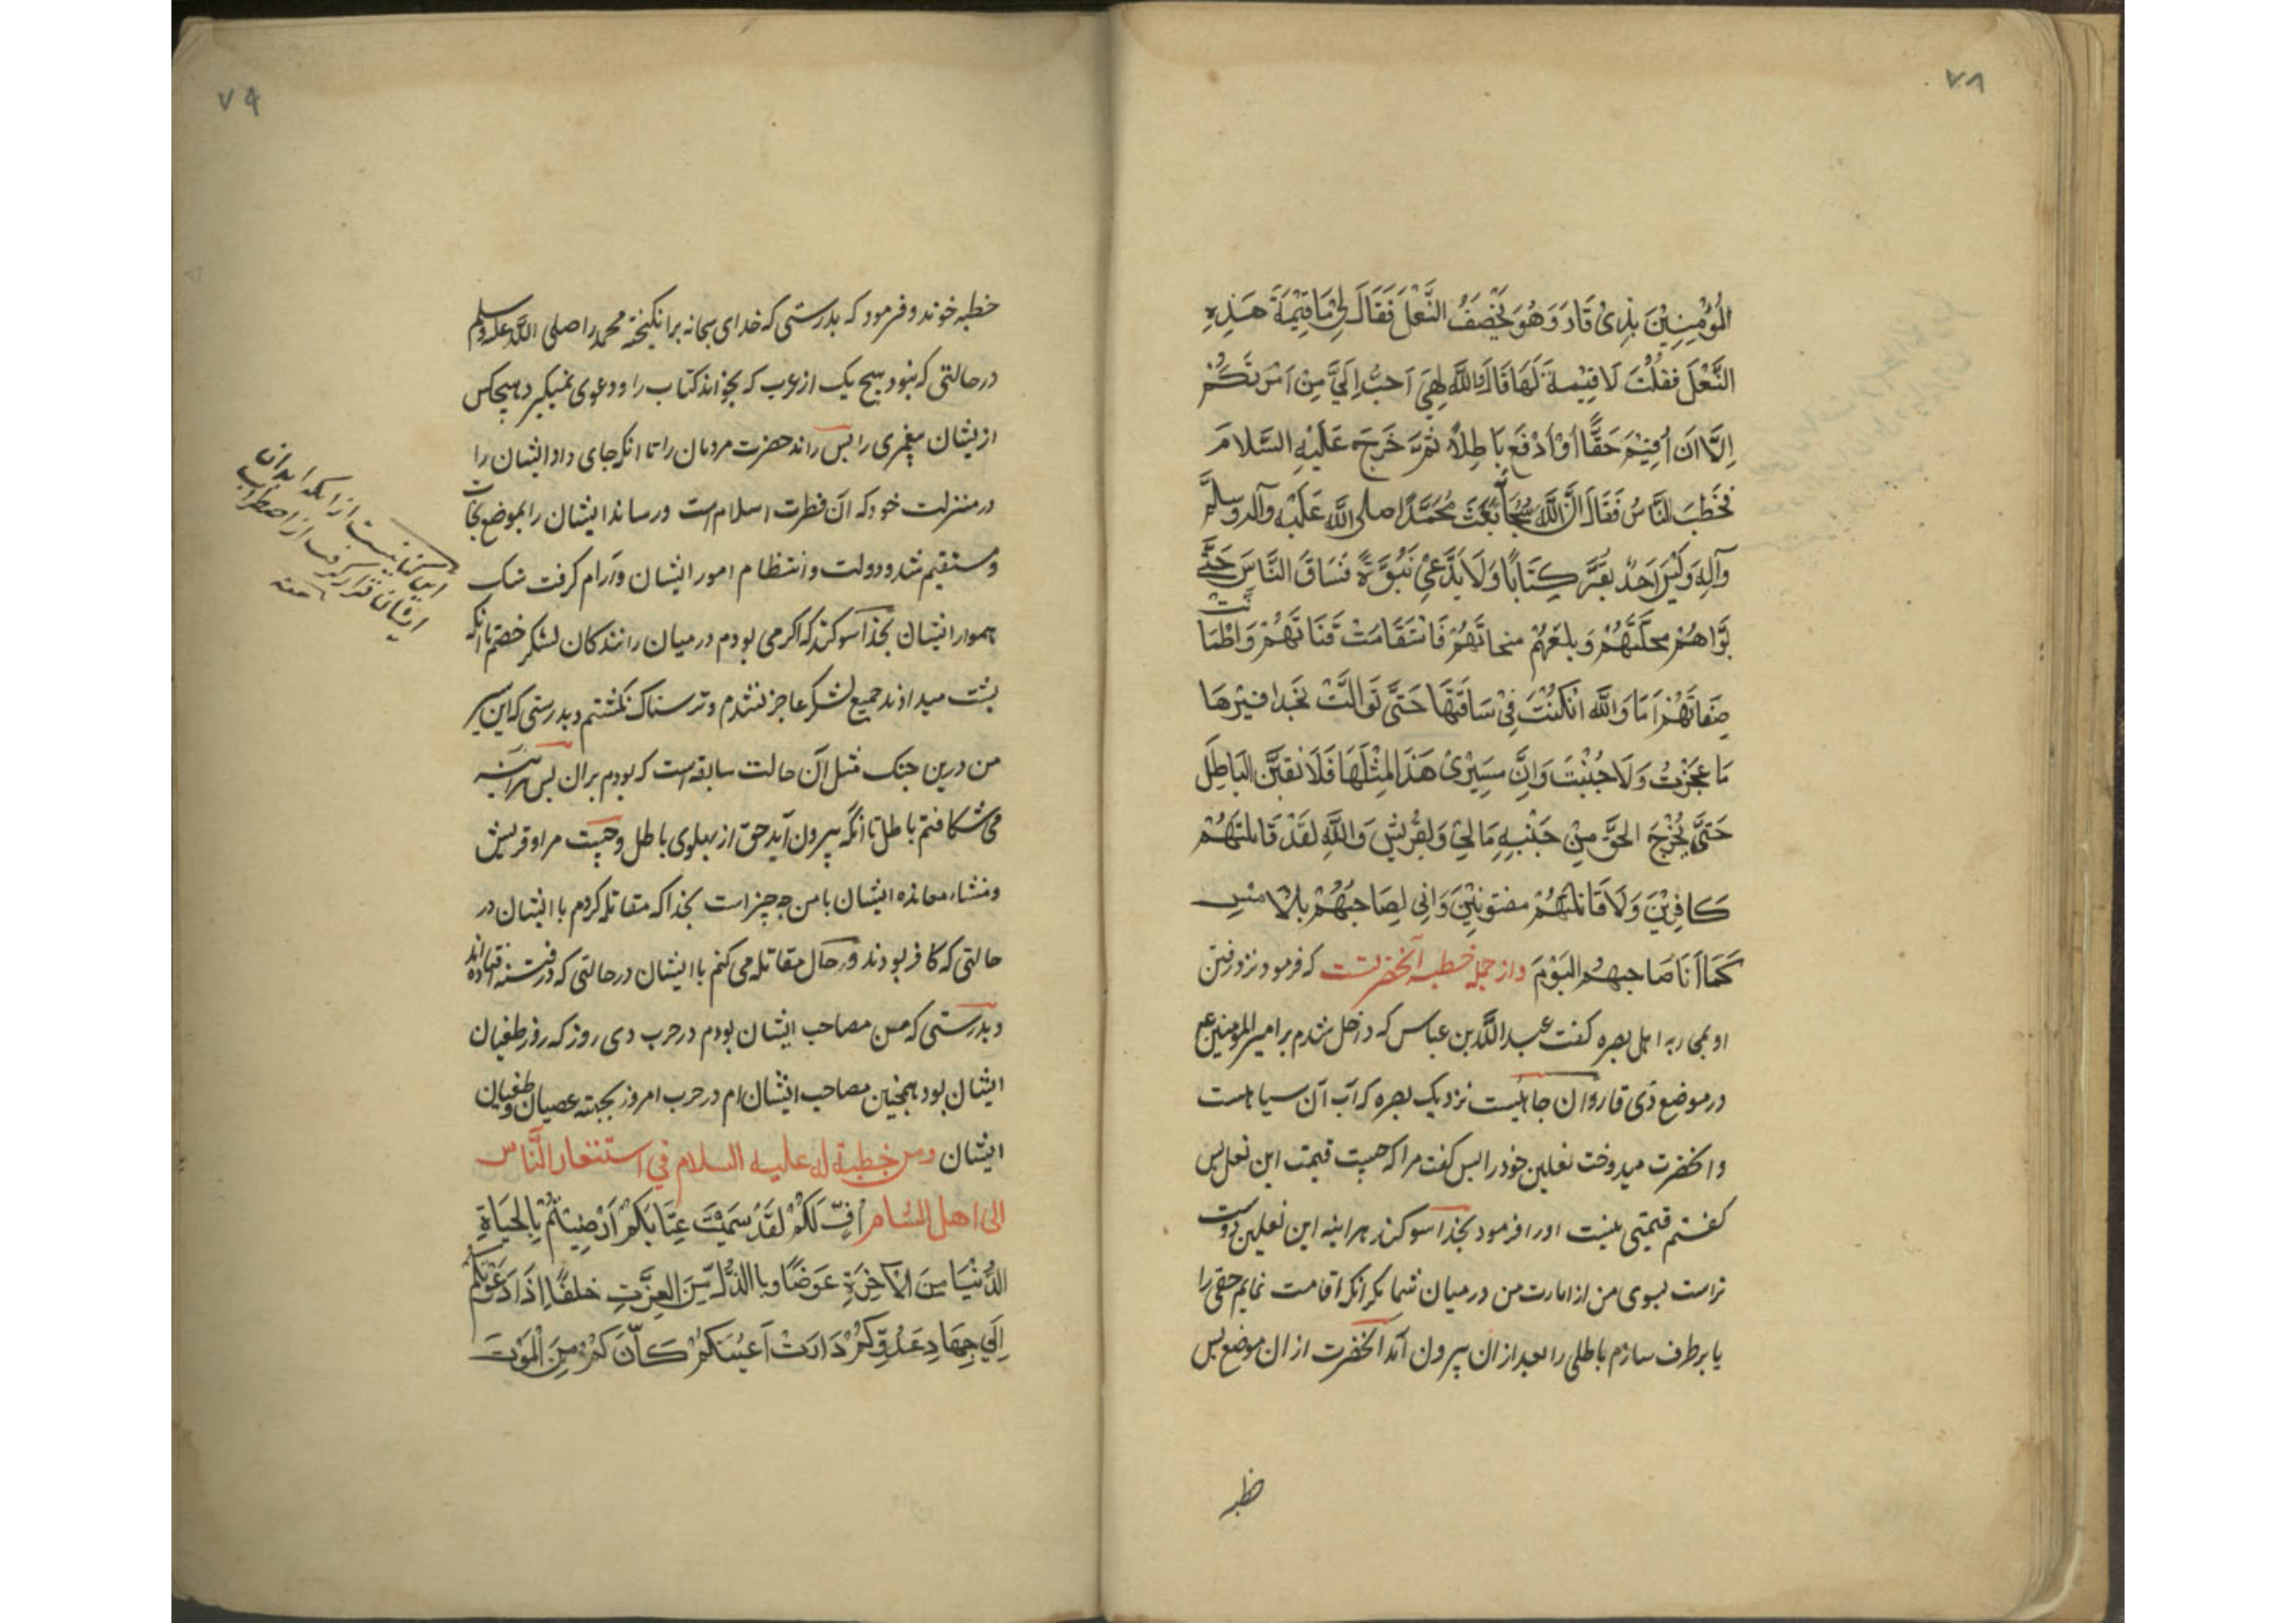 ٧٨
المُؤْمِنِيْنَ بِذِىْ قَارَ وَهُوَ يَخْصَفُ النَّعْلَ فَقَالَ لِىْ مَا قِيْمَةَ هَذِهِ
النَّعْلَ فَقُلْتَ لَا قِيْمةَ لَهَا قَالَ وَاللَّهِ لَهِىَ اَحَبُّ اِلَىَّ مِنْ اَمْرَتكُمْ
اِلَّا اَن اُقِيْمَ حَقًّا اَوْ اَدْفَعَ بَاطِلًا ثمَّ خَرَجَ عَلَيْهِ السَّلامَ
فخَطبَ النَّاسُ فَقَالَ اِنَّ اللَّهَ سُبْحَانَهُ بَعَثَ مُحَمَّدًا صلى اللَّه عَلَيْه وآله وسلَّم
وآلِهَ وَلَيْسَ اَحَدٌ يَقَرَّ كِتَابًا وَلَا يَدَّعِىْ نَبُوَّةً فَسَاقَ النَّاسَ حَتَّى
بَوَّاهُمْ مَحَلَّتَهُمْ وَبلغَهُمْ منجاتَهُمْ فَاسْتَقَامَتْ قَنَاتَهُمْ وَاطْمَانَّت
صِفَاتَهُمْ اَمَا وَاللَّهِ اِنْ كُنْتَ فِىْ سَاقَتَهَا حَتَّى تَوالَّتْ بحَذَافيْرهَا
مَا عجَزْتُ وَلَا جُبْنْتَ وَاِنَّ مسِيْرِىْ هَذَا لِمِثْلَهَا فَلَا نقبَنَّ البَاطِلَ
حَتَّى يُخْرجَ الحَقَّ مِنْ جَنْبِهِ مَا لِىْ وَلِقُرَيْشٍ وَاللَّهِ لَقَدْ قَاتلتَهُمْ
كَافِرِيْنَ وَلَا قَاتلنَّهُمْ مفتونِيْنَ وَاِنِى لِصَاحِبُهُمْ بالْاَمْسِ
كَمَا اَنَا صَاحِبهُم اليَوْمَ واز جمله خطبه آنحضرتست كه فرمود نزد رفتن
او بمحاربه اهل بصره كفت عبد اللَّه بن عباس كه داخل شدم بر امير المومنين ع
در موضع ذى قار و آن جائيست نزديك بصره كه آب آن سياهست
و آنحضرت ميدوخت نعلين خود را پس كفت مرا كه چيست قيمت اين نعل پس
كفتم قيمتى نيست او را فرمود بخدا سوكند هراينه اين نعلين دوست
تراست بسوى من از امارت من در ميان شما مكر انكه اقامت نمايم حقى را
يا برطرف سازم باطلى را بعد از ان بيرون آمد آنحضرت از ان موضع پس
خطبه
٧٩
خطبه خوند و فرمود كه بدرستى كه خداى سبحانه برانكيخته محمد را صلى اللَّه عليه وسلم
در حالتى كه نبود هيچ يك از عرب كه بخواند كتاب را و دعوى نميكرد هيچكس
از يشان پيغمبرى را پس راند حضرت مردمان را تا انكه جاى داد ايشان را
در منزلت خود كه آن فطرت اسلام است و رساند ايشان را بموضع نجات
و مستقيم شد دولت و انتظام امور ايشان و آرام كرفت سنك
هموار ايشان بخدا سوكند كه اكر مى بودم در ميان رانندكان لشكر خصم تا انكه
پشت ميدادند جميع لشكر عاجز نشدم و ترسناك نكشتم و بدرستى كه اين سير
من درين جنك مثل آن حالت سابقه است كه بودم بران پس هراينه
مى شكافتم باطل تا انكه بيرون آيد حق از پهلوى باطل و چيست مرا و قريش
و منشاء معانده ايشان با من چه چيز است بخدا كه مقاتله كردم با ايشان در
حالتى كه كافر بودند و حال مقاتله مى كنم با ايشان در حالتى كه در فتنه افتاده اند
و بدرستى كه من مصاحب ايشان بودم در حرب دى روز كه روز طغيان
ايشان بود همچنين مصاحب ايشان ام در حرب امروز بجهته عصيان و طغيان
ايشان ومن خطبة له عليه السلام في استنفار النَّاس
الى اهل الشام اُفٍّ لَكُمْ لقَدْ سَمِيْتَ عِتَابَكُمْ اَرَضِيْتُمْ بِالحَيَاةِ
الدُّنْيَا مِنَ الْآخِرَةِ عَوَضًا وبا الذُّلِّ مِنَ العِزَّتِ خلفًا اِذَا دَعَوْتكُمْ
اِلَى جِهَادِ عَدُوِّكُمْ دَارَتْ اَعيُنَكُمْ كَاَنَّ كمْ مِنَ الْمَوْتَ
اين كنايتست از انكه ايشان
ايشان قرار كرفت از اضطراب